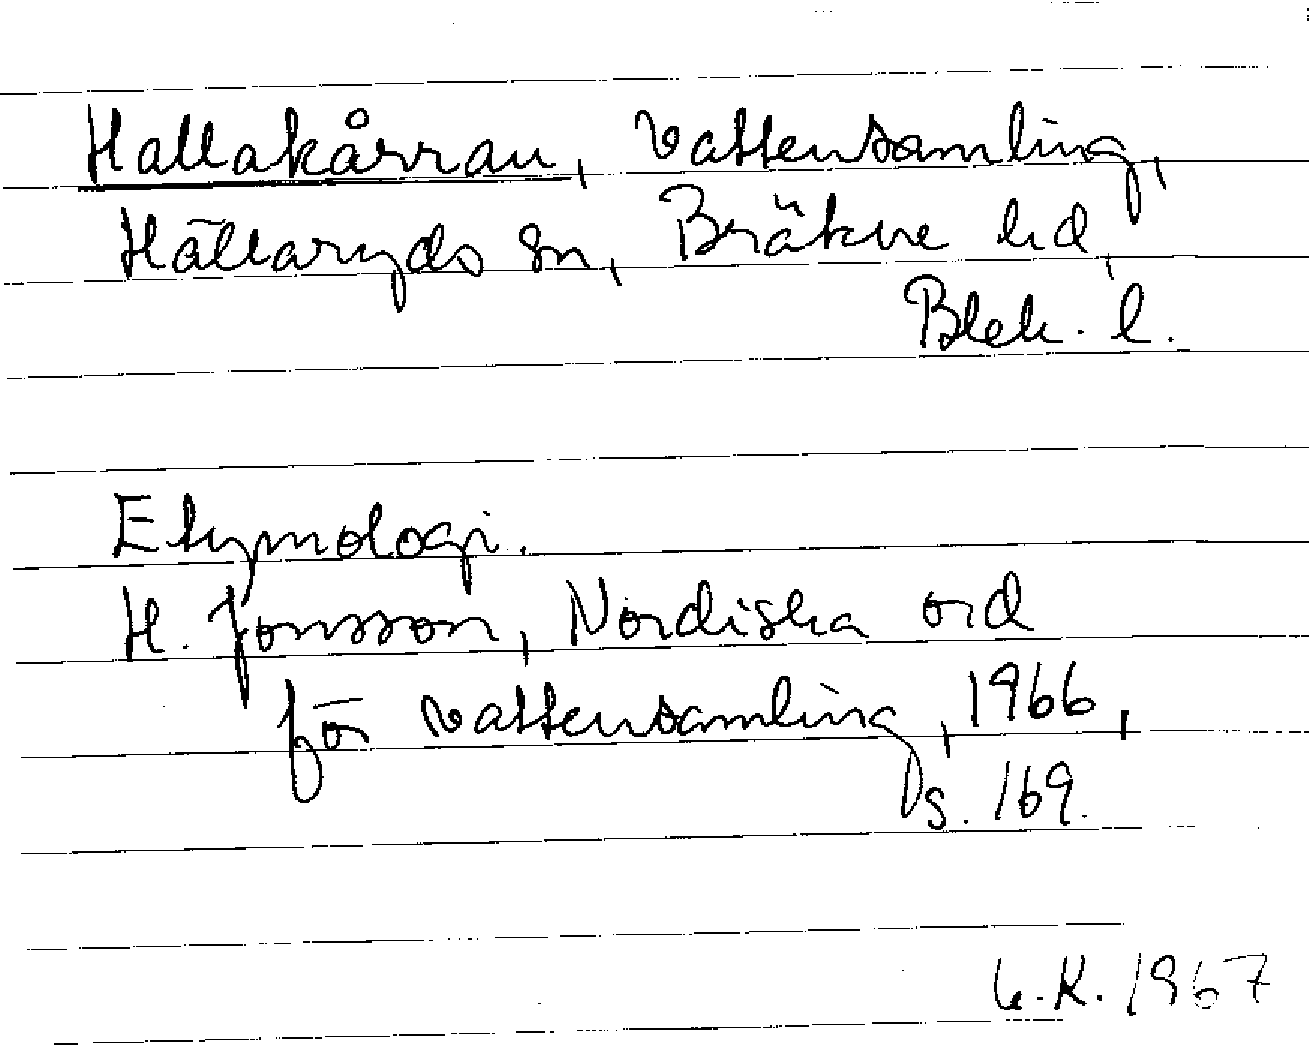 Hallakårran, vattensamling,
Hällaryds sn, Bräkne hd,
Blek. l.
Etymologi.
H. Jonsson, Nordiska ord
för vattensamling, 1966,
s. 169.
L.K. 1967